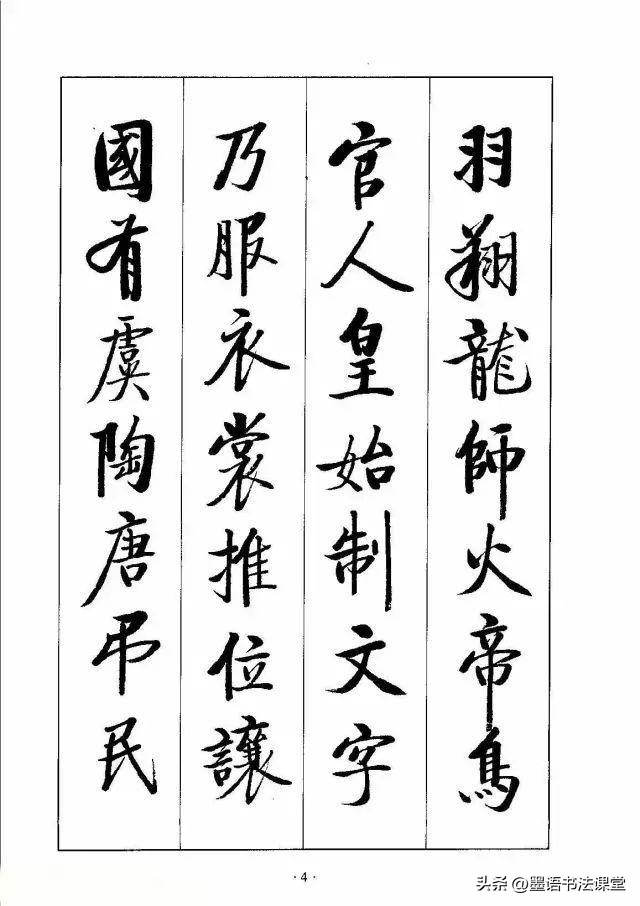 羽翔龍師火帝鳥
官人皇始制文字
乃服衣裳推位讓
國有虞陶唐弔民
·4·
头条 @墨语书法课堂